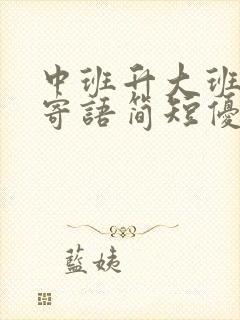 中班升大班
寄語简短優
藍姨